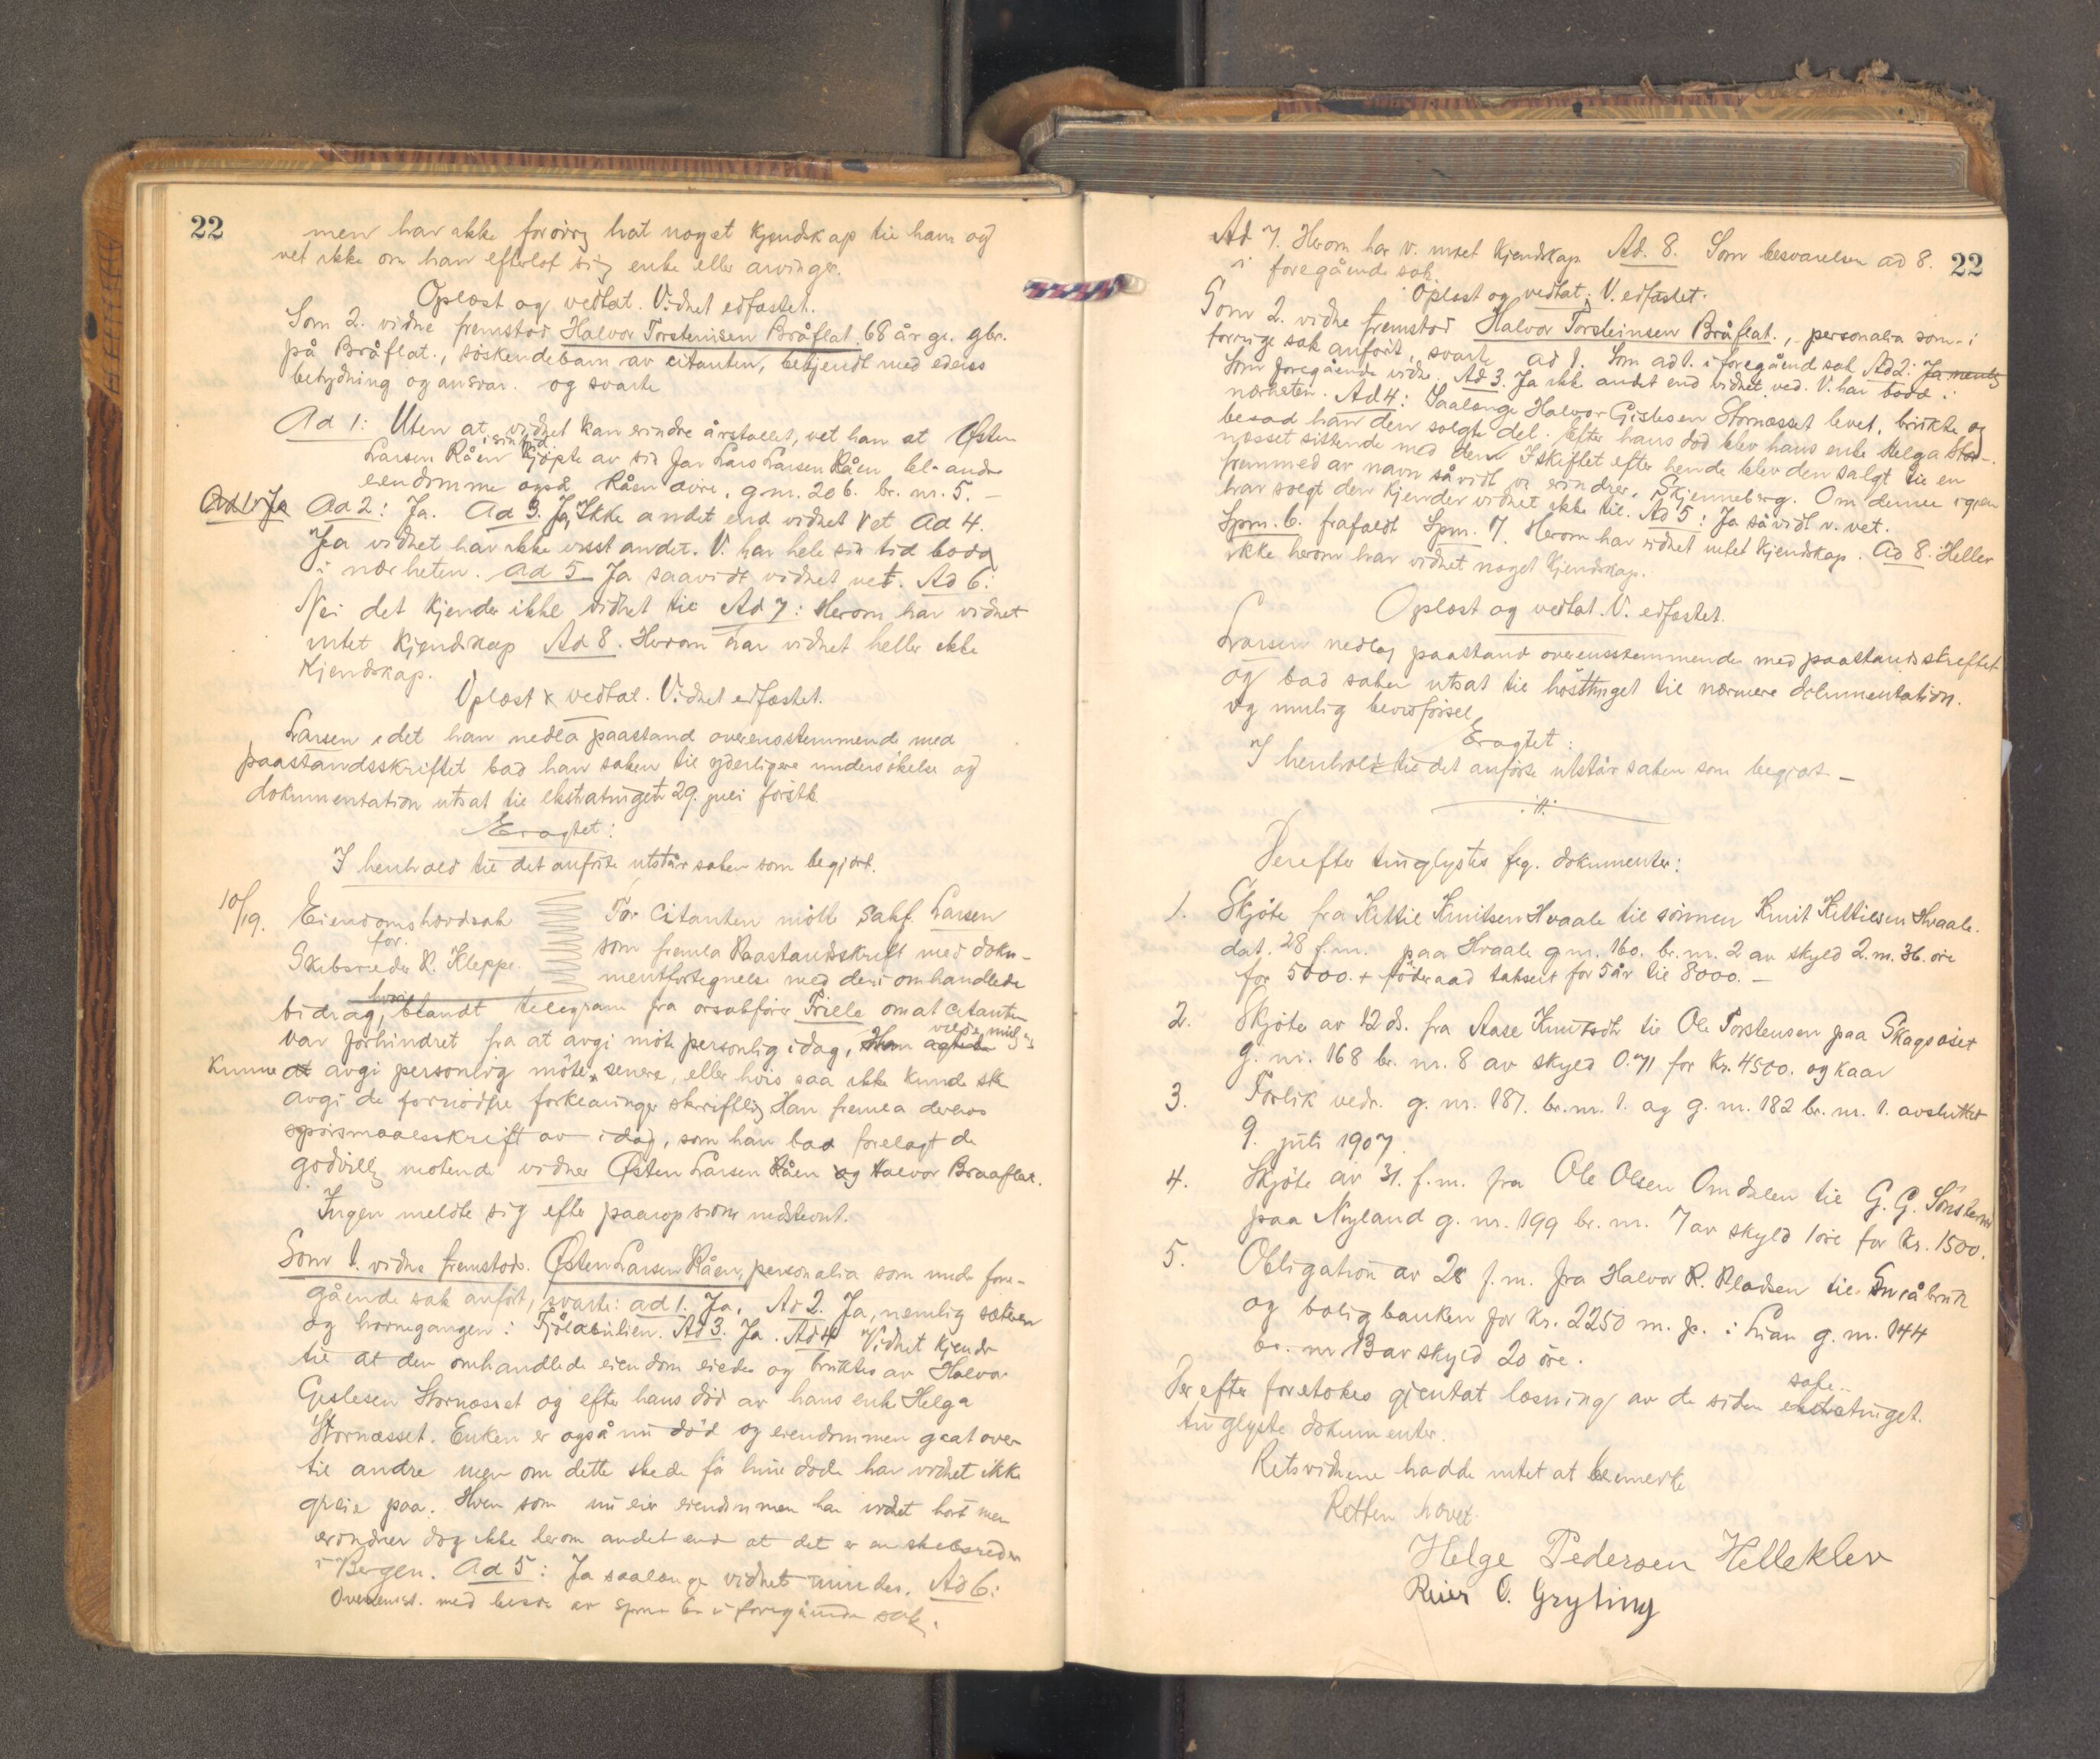 22
men har ikke forøvrig hat noget kjendskap til ham og
vet ikke om han efterlot sig enke eller arvinger.
Oplæst og vedtat. Vidnet edfæstet.
Som 2. vidne fremstod Halvor Torsteinsen Bråflat. 68 år gl. gbr.
på Bråflat., søskendebarn av citanten, bekjendt med edens
betydning og ansvar. og svarte
Ad 1: Uten at vidnet kan erindre årstallet, vet han at Østen
Larsen Råen i sin tid kjøpte av sin far Lars Larsen Råen bl. andre
eiendomme også Råen øvre, g.nr. 206. br. nr. 5. –
Ad 1. Ja Ad 2: Ja. Ad 3. Ja, Ikke andet end vidnet vet Ad 4.
Ja vidnet har ikke visst andet. V. har hele sin tid bodd
i nærheten. Ad 5 Ja saavidt vidnet vet. Ad 6:
Nei det kjender ikke vidnet til Ad 7: Herom har vidnet
intet kjendskap Ad 8. Herom har vidnet heller ikke
kjendskap.
Oplæst & vedtat. Vidnet edfæstet.
Larsen idet han nedla paastand overensstemmende med
paastandsskriftet bad han saken til yderligere undersøkelse og
dokumentation utsat til ekstratinget 29. juli førstk.
Eragtet:
I henhold til det anførte utstår saken som begjært.
10/19. Eiendomshævdsak
for
Skibsreder R. Kleppe.
For citanten møtte sakf. Larsen
som fremla Paastandsskrift med doku-
mentfortegnelse med deri omhandlede
bidrag, hvoriblandt telegram fra orsakfører Friele om at citanten
var forhindret fra at avgi møte personlig idag, Han agtede vilde mulig
kunne at avgi personlig møte senere, eller hvis saa ikke kunde ske
avgi de fornødne forklaringer skriftlig Han fremla derhos
spørsmaalsskrift av idag, som han bad forelagt de
godvillig møtende vidner Østen Larsen Råen og Halvor Braaflat.
Ingen meldte sig efter paarop som motstevnt.
Som 1. vidne fremstod. Østen Larsen Råen, personalia som under fore-
gående sak anført, svarte: ad 1. Ja. Ad 2. Ja, nemlig sæteren
og havnegangen i Ad 3. Ja. Ad 4 Vidnet kjender
til at den omhandlede eiendom eiedes og bruktes av Halvor
Gislesen Stornæsset og efter hans død av hans enke Helga
Stornæsset. Enken er også nu død og eiendommen gaat over
til andre men om dette skede før hun døde har vidnet ikke
greie paa. Hvem som nu eier eiendommen har vidnet hørt men
erindrer dog ikke herom andet end at det er en skibsreder
i Bergen. Ad 5: Ja saalænge vidnet mindes. Ad 6:
Overenst. med besv. av spm. 6 i foregående sak.
22
Ad 7. Herom har v. intet kjendskap. Ad. 8. Som besvarelsen ad 8.
i foregående sak.
Oplæst og vedtat. V. edfæstet.
Som 2. vidne fremstod Halvor Torsteinsen Bråflat., personalia som i
forrige sak anført, svarte ad 1. Som ad 1. i foregående sak Ad 2: Ja nemlig
Som foregående vidne. Ad 3. Ja ikke andet end vidnet ved. V. har bodd i
nærheten. Ad 4: Saalænge Halvor Gislesen Stornæsset levet, brukte og
besad han den solgte del. Efter hans død blev hans enke Helga Stor-
næsset sittende med den. I skiftet efter hende blev den solgt til en
fremmed av navn såvidt v. erindrer, Skjenneberg. Om denne igjen
har solgt den kjender vidnet ikke til. Ad 5: Ja såvidt v. vet.
Spm. 6. frafaldt Spm. 7. Herom har vidnet intet kjendskap. Ad 8. Heller
ikke herom har vidnet noget kjendskap.
Oplæst og vedtat. V. edfæstet.
Larsen nedlag paastand overensstemmende med paastandsskriftet
og bad saken utsat til høsttinget til nærmere dokumentation.
og mulig bevisførsel
Eragtet:
I henhold til det anførte utstår saken som begjært. –
Derefter tinglystes flg. dokumenter:
1. Skjøte fra Kittil Knutsen Hvaale til sønnen Knut Kittilsen Hvaale.
dat. 28 f.m. paa Hvaale g.nr. 160. br.nr. 2 av skyld 2.m. 36. øre
for 5000. + føderaad taksert for 5 år til 8000. –
2. Skjøte av 12 ds. fra Aase Knutsdtr til Ole Torstensen paa Skagsoset
g. nr. 168 br. nr. 8 av skyld 0.71 for Kr. 4500. og kaar
3. Forlik vedr. g. nr. 187. br. nr. 1. og g. nr. 182 br. nr. 1. avsluttet
9. juli 1907.
4. Skjøte av 31. f.m. fra Ole Olsen Omdalen til G. G.
paa Nyland g. nr. 199 br. nr. 7 av skyld 1 øre for Kr. 1500.
5. Obligation av 28 f.m. fra Halvor R. Pladsen til Småbruk
og boligbanken for Kr. 2250 m. p. i Lian g. nr. 144
br. nr 13 av skyld 20 øre.
Derefter foretokes gjentat læsning av de siden siste ekstratinget.
tinglyste dokumenter.
Retsvidnene hadde intet at bemerke
Retten hævet.
Helge Pedersen Helleklev
Reier O. Gryting